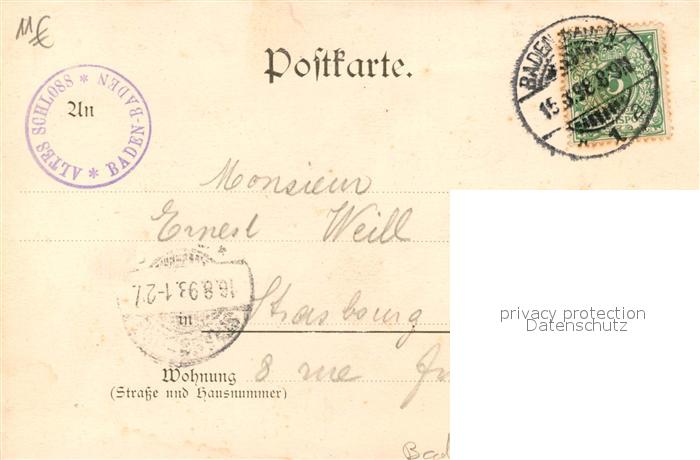 11 €
Postkarte.
* ALTES SCHLOSS * BADEN-BADEN
BADEN (BADEN)
15.8.98.8-9N
1 a
5
An
Monsieur
Ernest Weill
16.8.98.1-2
in Strasbourg
Wohnung 8 rue
(Straße und Hausnummer)
Bad
privacy protection
Datenschutz